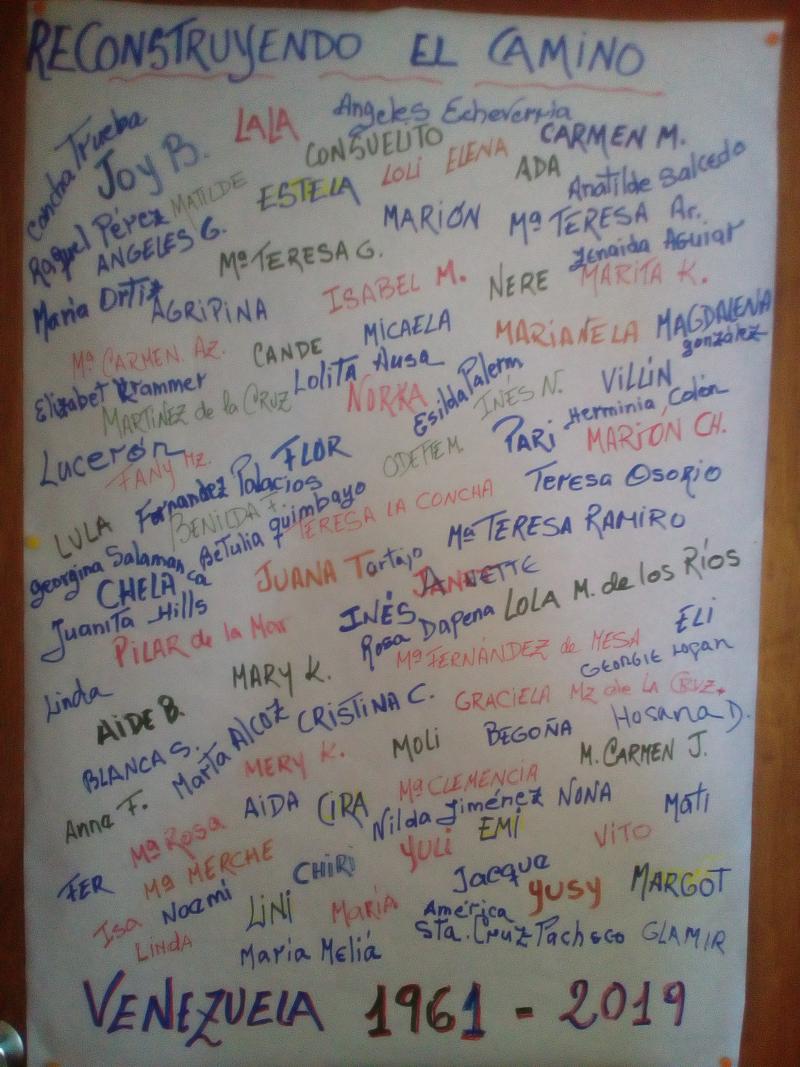 RECONSTRUYENDO EL CAMINO
Concha Trueba
Joy B.
LALA
Angeles Echeverria
CONSUELITO
CARMEN M.
Raquel Pérez
MATILDE
ESTELA
LOLI
ELENA
ADA
Anatilde Salcedo
ANGELES G.
Mª TERESA G.
MARIÓN
Mª TERESA Ar.
Zenaida Aguiar
Maria Ortiz
AGRIPINA
ISABEL M.
NERE
MARITA K.
Mª CARMEN. Az.
CANDE
MICAELA
MARIANELA
MAGDALENA
gonzález
Elizabet Krammer
MARTINEZ de la CRUZ
LOLITA Ausa
NORKA
Esilda Palerm
INÉS N.
VILLÍN
Herminia Colón
Lucerón
FANY Mz.
FLOR
ODETTE M.
PARI
MARION CH.
LULA
Fernandez Palacios
BENILDA F.
TERESA LA CONCHA
Teresa Osorio
Georgina Salamanca
BeTulia quimbayo
Mª TERESA RAMIRO
CHELA
JUANA Tartajo
JANETTE
Juanita Hills
PILAR de la Mar
INÉS
Rosa Dapena
LOLA M. de los Ríos
Linda
MARY K.
Mª FERNÁNDEZ de MESA
ELI
GEORGIE Hogan
AIDE B.
MARTA ALCOZ
CRISTINA C.
GRACIELA Mz de LA CRUZ.
BLANCA S.
MERY K.
MOLI
BEGOÑA
Hosana D.
M. CARMEN J.
Anne F.
Mª Rosa
AIDA
CIRA
Mª CLEMENCIA
Nilda Jiménez
NONA
Mati
FER
Mª MERCHE
CHIRI
YULI
EMI
VITO
Isa
Noemi
LINI
MARÍA
Jacque
YUSY
MARGOT
LINDA
Maria Meliá
América
Sta. Cruz Pacheco
GLAMIR
VENEZUELA 1961 - 2019